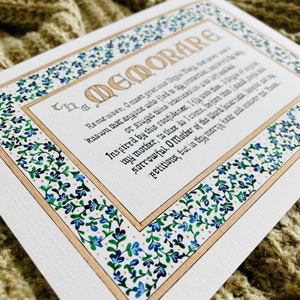 The
MEMORARE
Remember, O most gracious Virgin Mary, that never was it
known that anyone who fled to thy protection, implored thy help,
or sought thine intercession was left unaided.
Inspired by this confidence, I fly unto thee, O Virgin of virgins,
my mother; to thee do I come, before thee I stand, sinful and
sorrowful. O Mother of the Word Incarnate, despise not my
petitions, but in thy mercy hear and answer me.